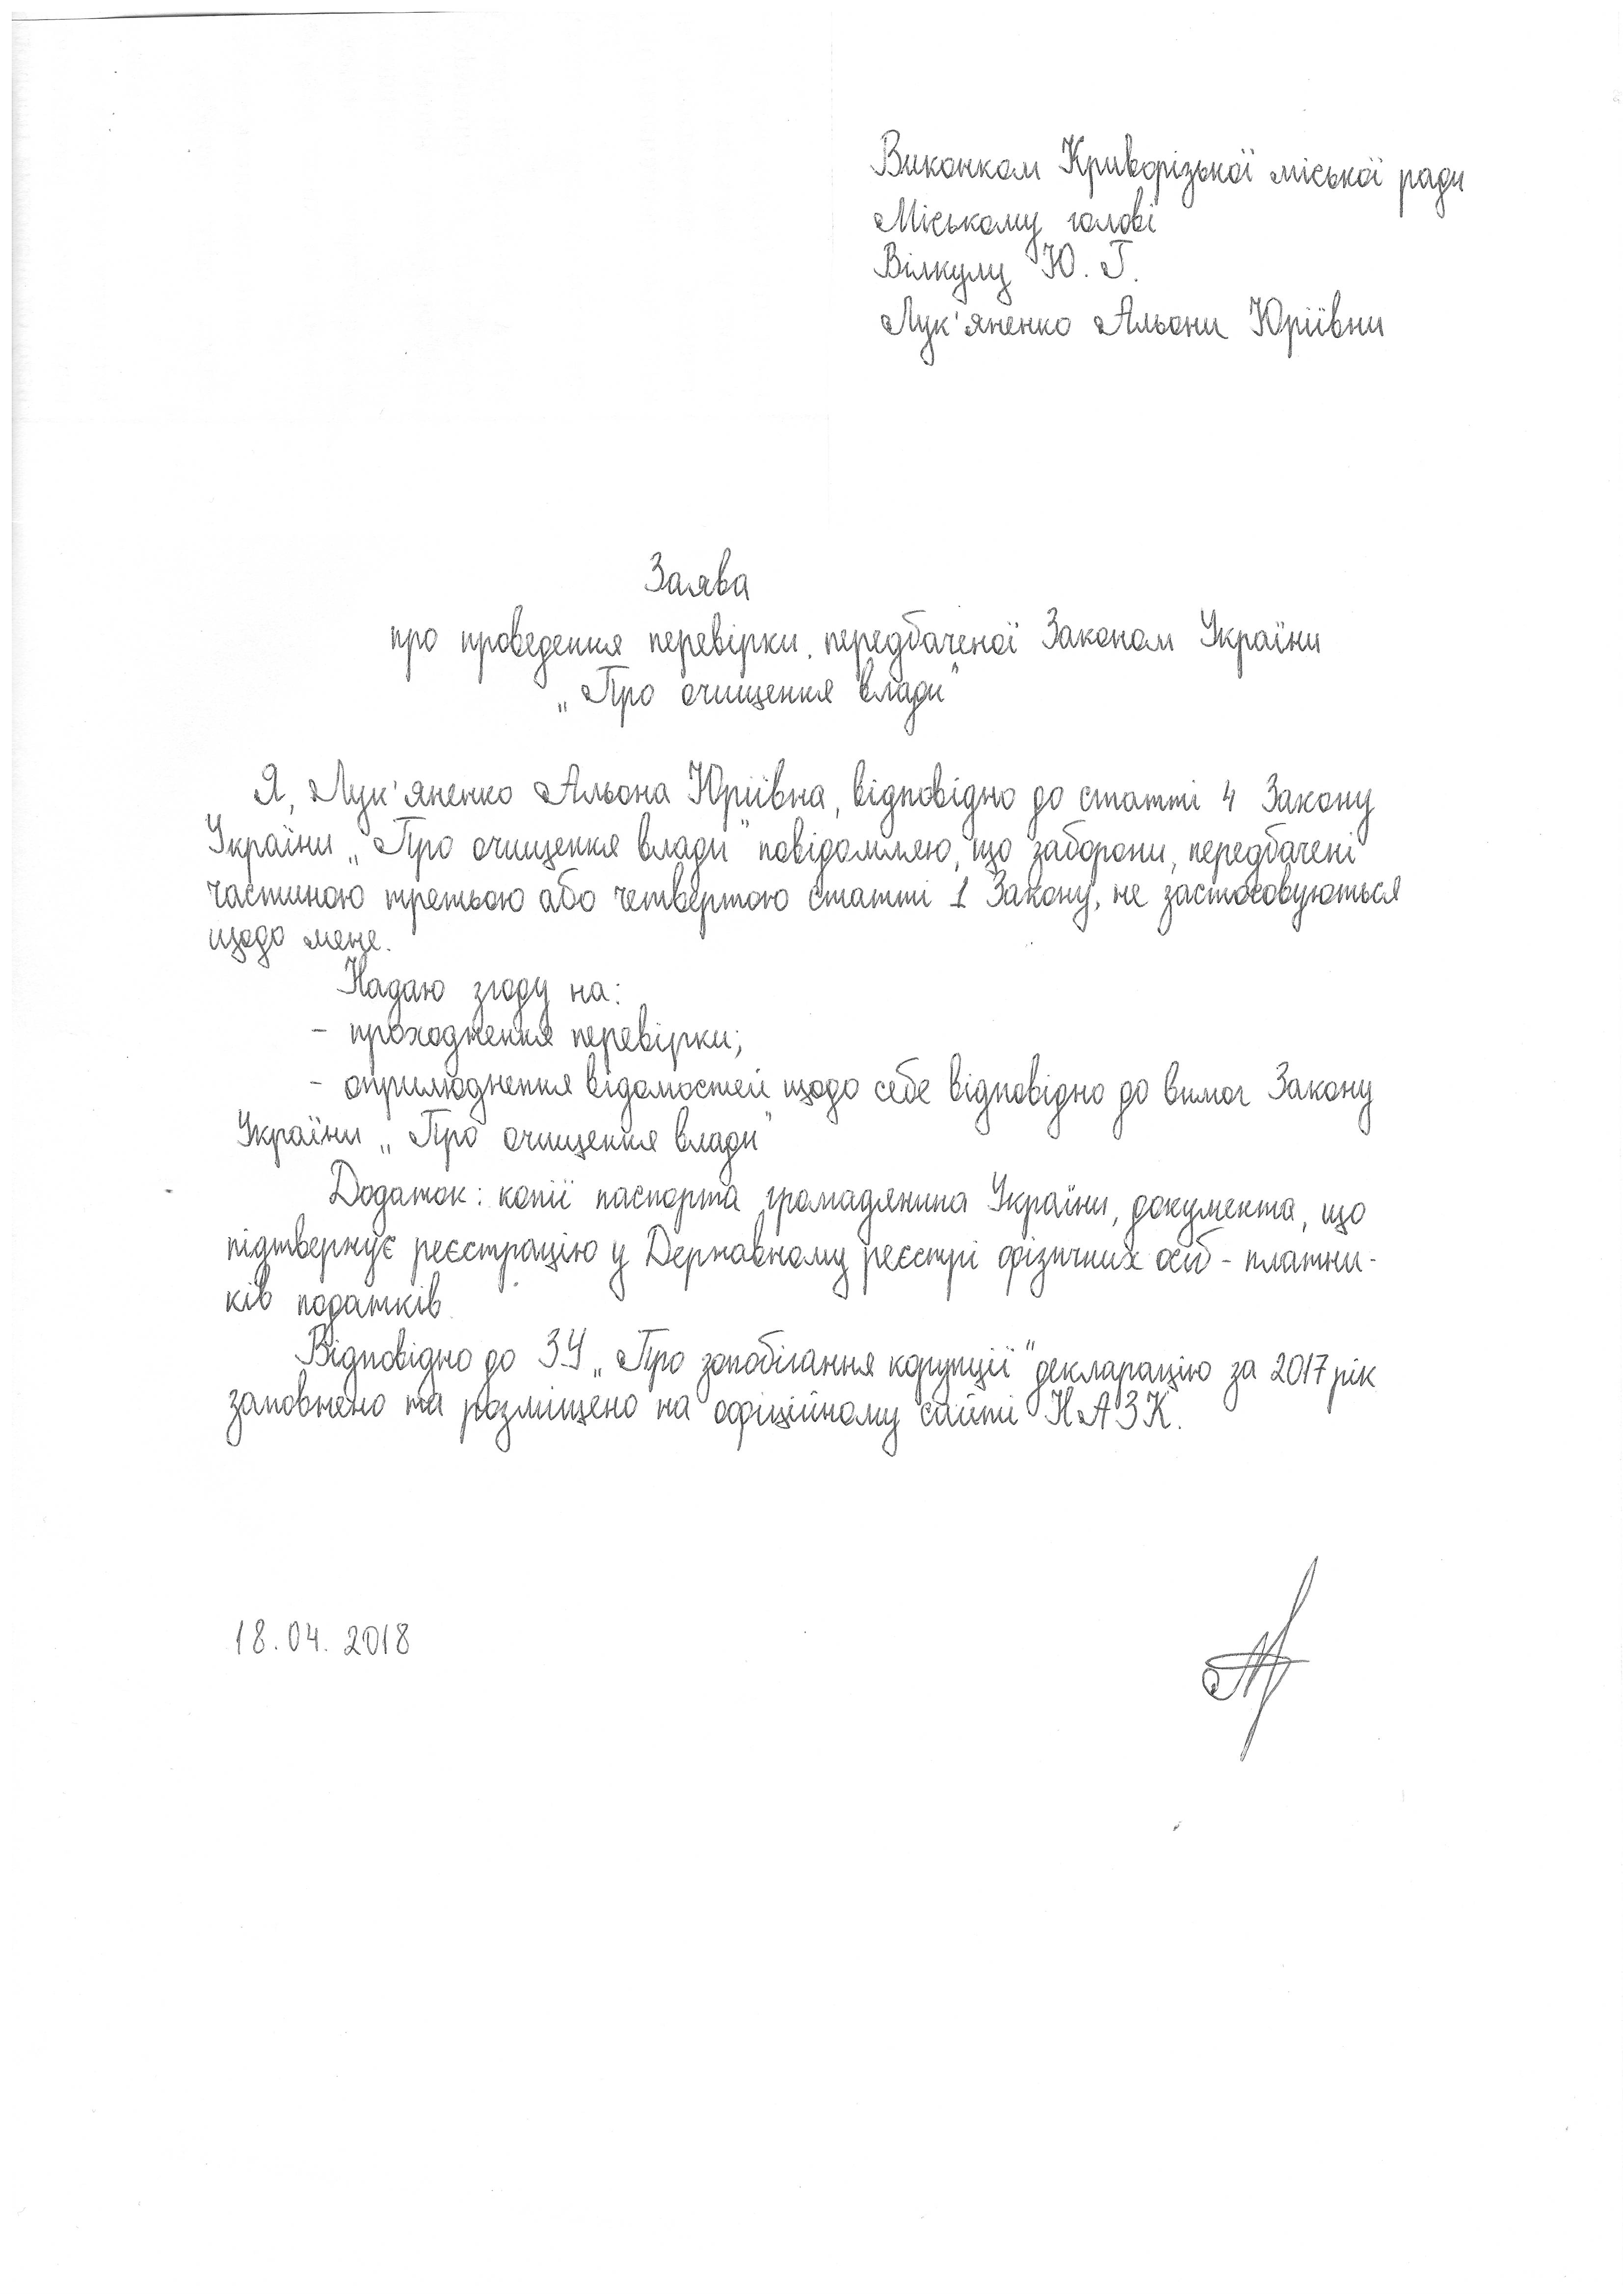 Виконком Криворізької міської ради
Міському голові
Вілкулу Ю. Г.
Лук'яненко Альони Юріївни
Заява
про проведення перевірки, передбаченої Законом України
„Про очищення влади"
Я, Лук'яненко Альона Юріївна, відповідно до статті 4 Закону
України „Про очищення влади" повідомляю, що заборони, передбачені
частиною третьою або четвертою статті 1 Закону, не застосовуються
щодо мене.
Надаю згоду на:
- проходження перевірки;
- оприлюднення відомостей щодо себе відповідно до вимог Закону
України „Про очищення влади"
Додаток: копії паспорта громадянина України, документа, що
підтвержує реєстрацію у Державному реєстрі фізичних осіб - платни-
ків податків
Відповідно до ЗУ „Про запобігання корупції" декларацію за 2017 рік
заповнено та розміщено на офіційному сайті НАЗК.
18.04.2018